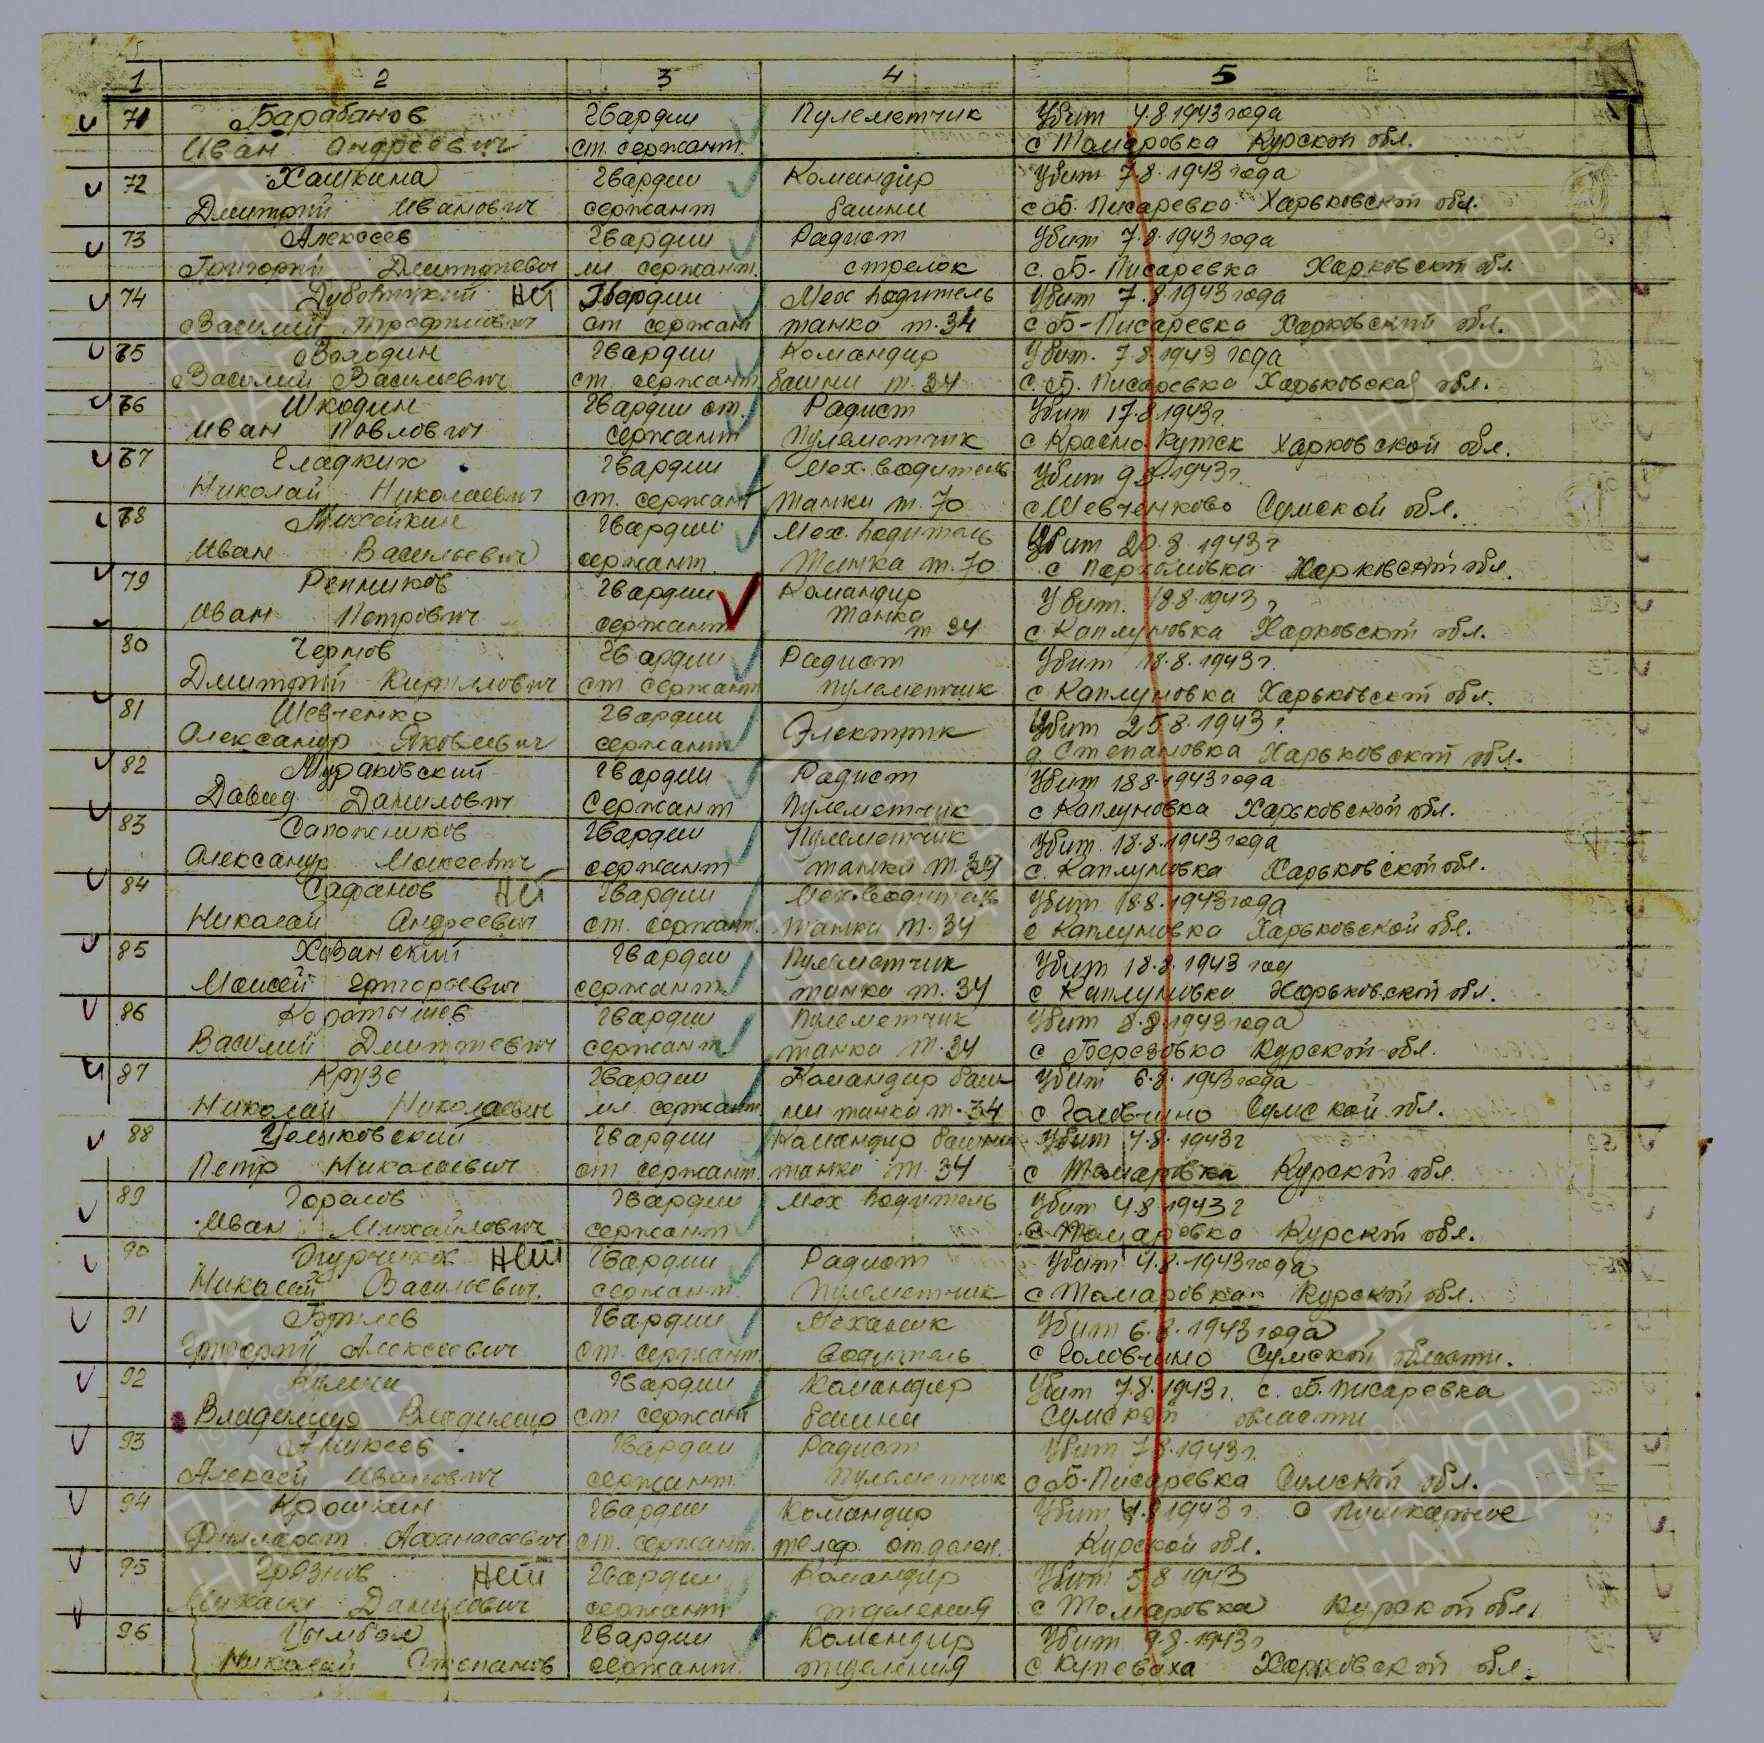 1 2 3 4 5
71 Барабанов Гвардии Пулеметчик Убит 4.8.1943 года
Иван Андреевич ст. сержант. с Томаровка Курской обл.
72 Хашкина Гвардии Командир Убит 7.8.1943 года
Дмитрий Иванович сержант башни с Б. Писаревка Харьковской обл.
73 Алексеев Гвардии Радист Убит 7.8.1943 года
Григорий Дмитриевич мл. сержант. стрелок с. Б-Писаревка Харковской обл
74 нет Гвардии Мех водитель Убит 7.8.1943 года
Василий Трофимович ст сержант танка т.34 с Б-Писаревка Харковской обл.
75 Володин Гвардии Командир Убит. 7.8.1943 года
Василий Васильевич ст. сержант башни т.34 с. Б. Писаревка Харьковская обл.
76 Шкодин Гвардии ст. Радист Убит 17.8.1943г.
Иван Павлович сержант Пулеметчик с Красно Кутск Харковской обл.
77 Гладких Гвардии Мех. водитель Убит 9.8.1943г.
Николай Николаевич ст. сержант танки т.70 с Шевченково Сумской обл.
78 Михейкин Гвардии Мех. водитель Убит 20.8.1943г
Иван Васильевич сержант. Танка т.70 с Пархомовка Харковской обл.
79 Репников Гвардии Командир Убит. 18 8.1943 г
Иван Петрович сержант Танка т 34 с. Каплуновка Харковской обл.
80 Чернов Гвардии Радист Убит 18.8.1943г.
Дмитрий Кириллович ст сержант пулеметчик с Каплуновка Харьковской обл.
81 Шевченко Гвардии Электрик Убит 25.8.1943 г.
Александр Яковлевич сержант д Степановка Харьковской обл.
82 Мураковский Гвардии Радист Убит 18 8.1943 года
Давид Данилович Сержант Пулеметчик с Каплуновка Харьковской обл.
83 Сапожников Гвардии Пулеметчик Убит. 18.8.1943 года
Александр Моисеевич сержант танка т.34 с. Каплуновка Харьковской обл.
84 Сафанов нет Гвардии Мех.водитель Убит 18 8.1943 года
Николай Андреевич ст. сержант. танка т.34 с Каплуновка Харьковской обл.
85 Хованский Гвардии Пулеметчик Убит 18.8.1943 год
Моисей Григорьевич сержант. танка т.34 с Каплуновка Харьковской обл.
86 Коротышев Гвардии Пулеметчик Убит 8.8.1943 года
Василий Дмитриевич сержант танка т.34 с Березовка Курской обл.
87 Крузе Гвардии Командир баш- Убит 6.8.1943 года
Николай Николаевич мл. сержант ни танка т.34 с Головчино Сумской обл.
88 Целиковский Гвардии Командир башни Убит 4.8.1943г
Петр Николаевич ст сержант. танка т.34 с Томаровка Курской обл
89 Горелов Гвардии Мех водитель Убит 4.8.1943г
Иван Михайлович сержант с Томаровка Курской обл.
90 Огурчихох нет Гвардии Радист Убит 4.8.1943 года
Николай Васильевич. сержант. Пулеметчик с Томаровка Курской обл.
91 Гвардии Механик Убит 6.8.1943 года
Григорий Алексеевич ст. сержант. водитель с Головчино Сумской области.
92 Гвардии Командир Убит 7.8.1943г. с. Б. Писаревка
Владимир Владимир ст сержант башни Сумской области
93 Аликеев Гвардии Радист Убит 7.8.1943г.
Алексей Иванович сержант. Пулеметчик с Б-Писаревка Сумской обл.
94 Крошкин Гвардии Командир Убит 4.8.1943 г. с Пушкарное
Филарет Афанасьевич ст. сержант. телеф. отделен. Курской обл.
95 Грязнов нет Гвардии Командир Убит 5 8 1943
Михаил Данилович сержант отделения с Томаровка Курской обл.
96 Цымбал Гвардии Командир Убит 9.8.1943г
Николай Степанов сержант. отделения с Купеваха Харковской обл.
ПАМЯТЬ НАРОДА
ПАМЯТЬ НАРОДА
ПАМЯТЬ НАРОДА
ПАМЯТЬ НАРОДА
ПАМЯТЬ НАРОДА